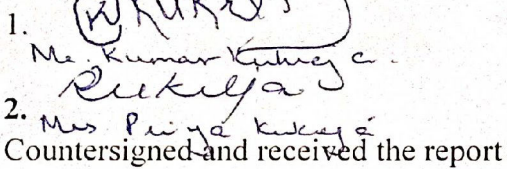 1.
Mr. Kumar Kukreja.
2. Rukreja
Mrs Priya Kukreja
Countersigned and received the report